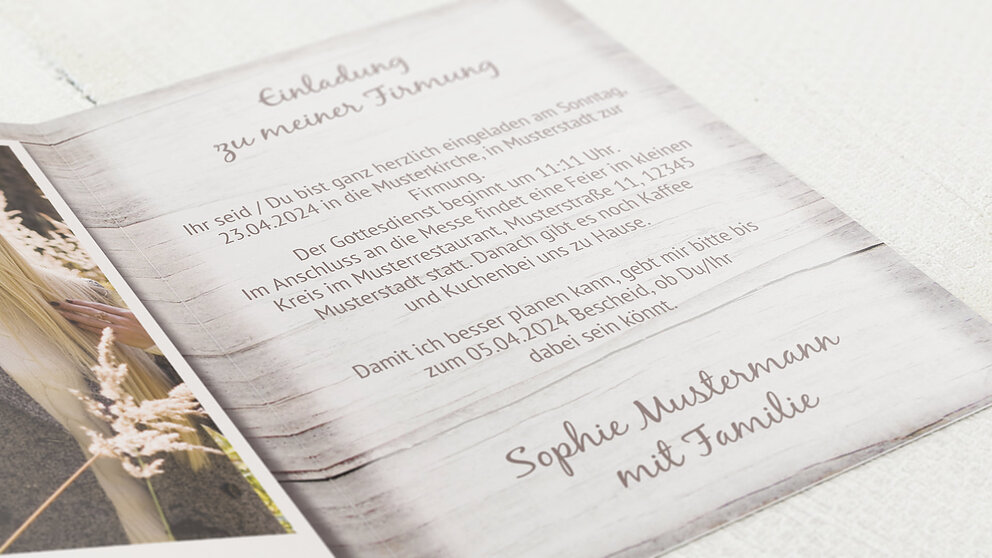 Einladung
zu meiner Firmung
Ihr seid / Du bist ganz herzlich eingeladen am Sonntag,
23.04.2024 in die Musterkirche, in Musterstadt zur
Firmung.
Der Gottesdienst beginnt um 11:11 Uhr.
Im Anschluss an die Messe findet eine Feier im kleinen
Kreis im Musterrestaurant, Musterstraße 11, 12345
Musterstadt statt. Danach gibt es noch Kaffee
und Kuchenbei uns zu Hause.
Damit ich besser planen kann, gebt mir bitte bis
zum 05.04.2024 Bescheid, ob Du/Ihr
dabei sein könnt.
Sophie Mustermann
mit Familie